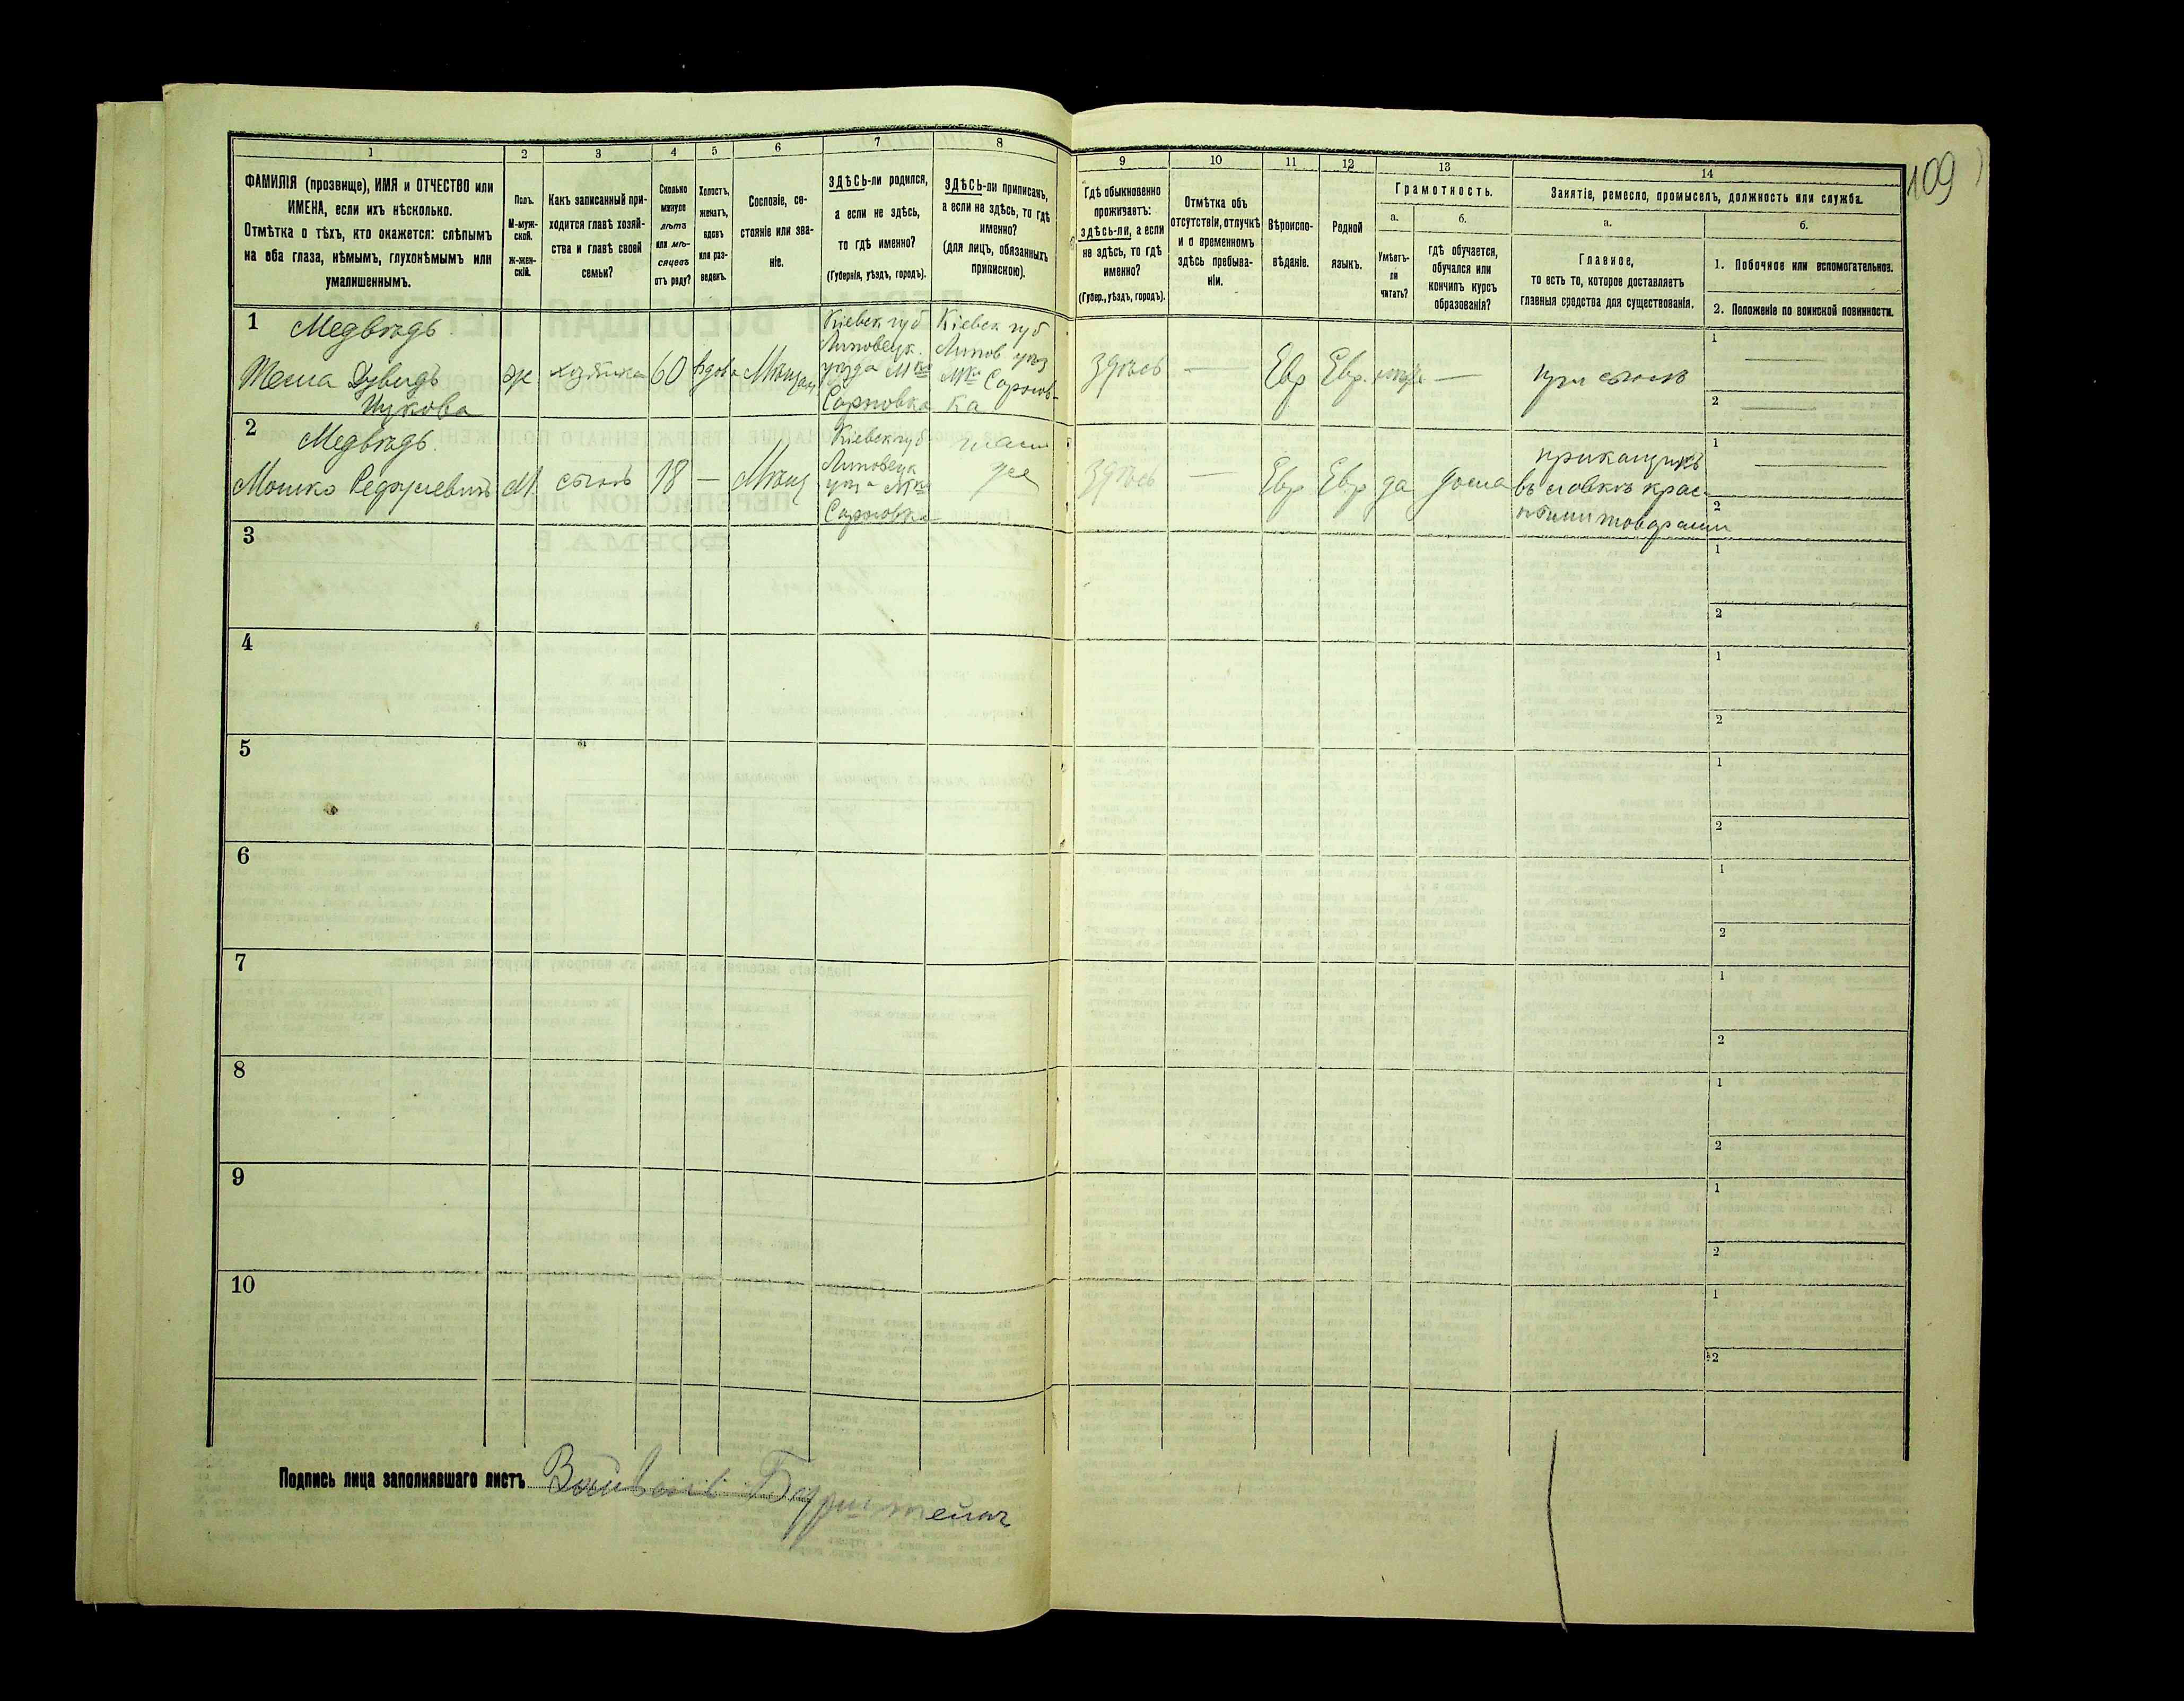 109
1
2
3
4
5
6
7
8
9
10
11
12
13
14
ФАМИЛІЯ (прозвище), ИМЯ и ОТЧЕСТВО или
ИМЕНА, если ихъ нѣсколько.
Отмѣтка о тѣхъ, кто окажется: слѣпымъ
на оба глаза, нѣмымъ, глухонѣмымъ или
умалишеннымъ.
Полъ.
М-муж-
ской.
ж-жен-
скій.
Какъ записанный при-
ходится главѣ хозяй-
ства и главѣ своей
семьи?
Сколько
минуло
лѣтъ
или мѣ-
сяцевъ
отъ роду?
Холостъ,
женатъ,
вдовъ
или раз-
веденъ.
Сословіе, со-
стояніе или зва-
ніе.
ЗДѢСЬ-ли родился,
а если не здѣсь,
то гдѣ именно?
(Губернія, уѣздъ, городъ).
ЗДѢСЬ-ли приписанъ,
а если не здѣсь, то гдѣ
именно?
(для лицъ, обязанныхъ
припискою).
Гдѣ обыкновенно
проживаетъ:
здѣсь-ли, а если
не здѣсь, то гдѣ
именно?
(Губер., уѣздъ, городъ).
Отмѣтка объ
отсутствіи, отлучкѣ
и о временномъ
здѣсь пребыва-
ніи.
Вѣроиспо-
вѣданіе.
Родной
языкъ.
Грамотность.
а.
Умѣетъ-
ли
читать?
б.
гдѣ обучается,
обучался или
кончилъ курсъ
образованія?
Занятіе, ремесло, промыселъ, должность или служба.
а.
Главное,
то есть то, которое доставляетъ
главныя средства для существованія.
б.
1. Побочное или вспомогательное.
2. Положеніе по воинской повинности.
1
Медвѣдь
Давидъ
Ицкова
ж
хозяйка
60
вдова
Мѣщан
Кіевск губ
Липовецк.
уѣзда Мка
Сороковка
Кіевск губ
Липов уѣз
Мка Сороков-
ка
Здѣсь
—
Евр
Евр.
—
при сынѣ
1
2
2
Медвѣдь
Мошко
М.
сынъ
18
—
Мѣщ
Кіевск губ
Липовецк
Мка
Сороковка
же
Здѣсь
—
Евр
Евр
да
дома
прикащикъ
въ лавкѣ крас-
ными товарами
1
2
3
1
2
4
1
2
5
1
2
6
1
2
7
1
2
8
1
2
9
1
2
10
1
2
Подпись лица заполнявшаго листъ